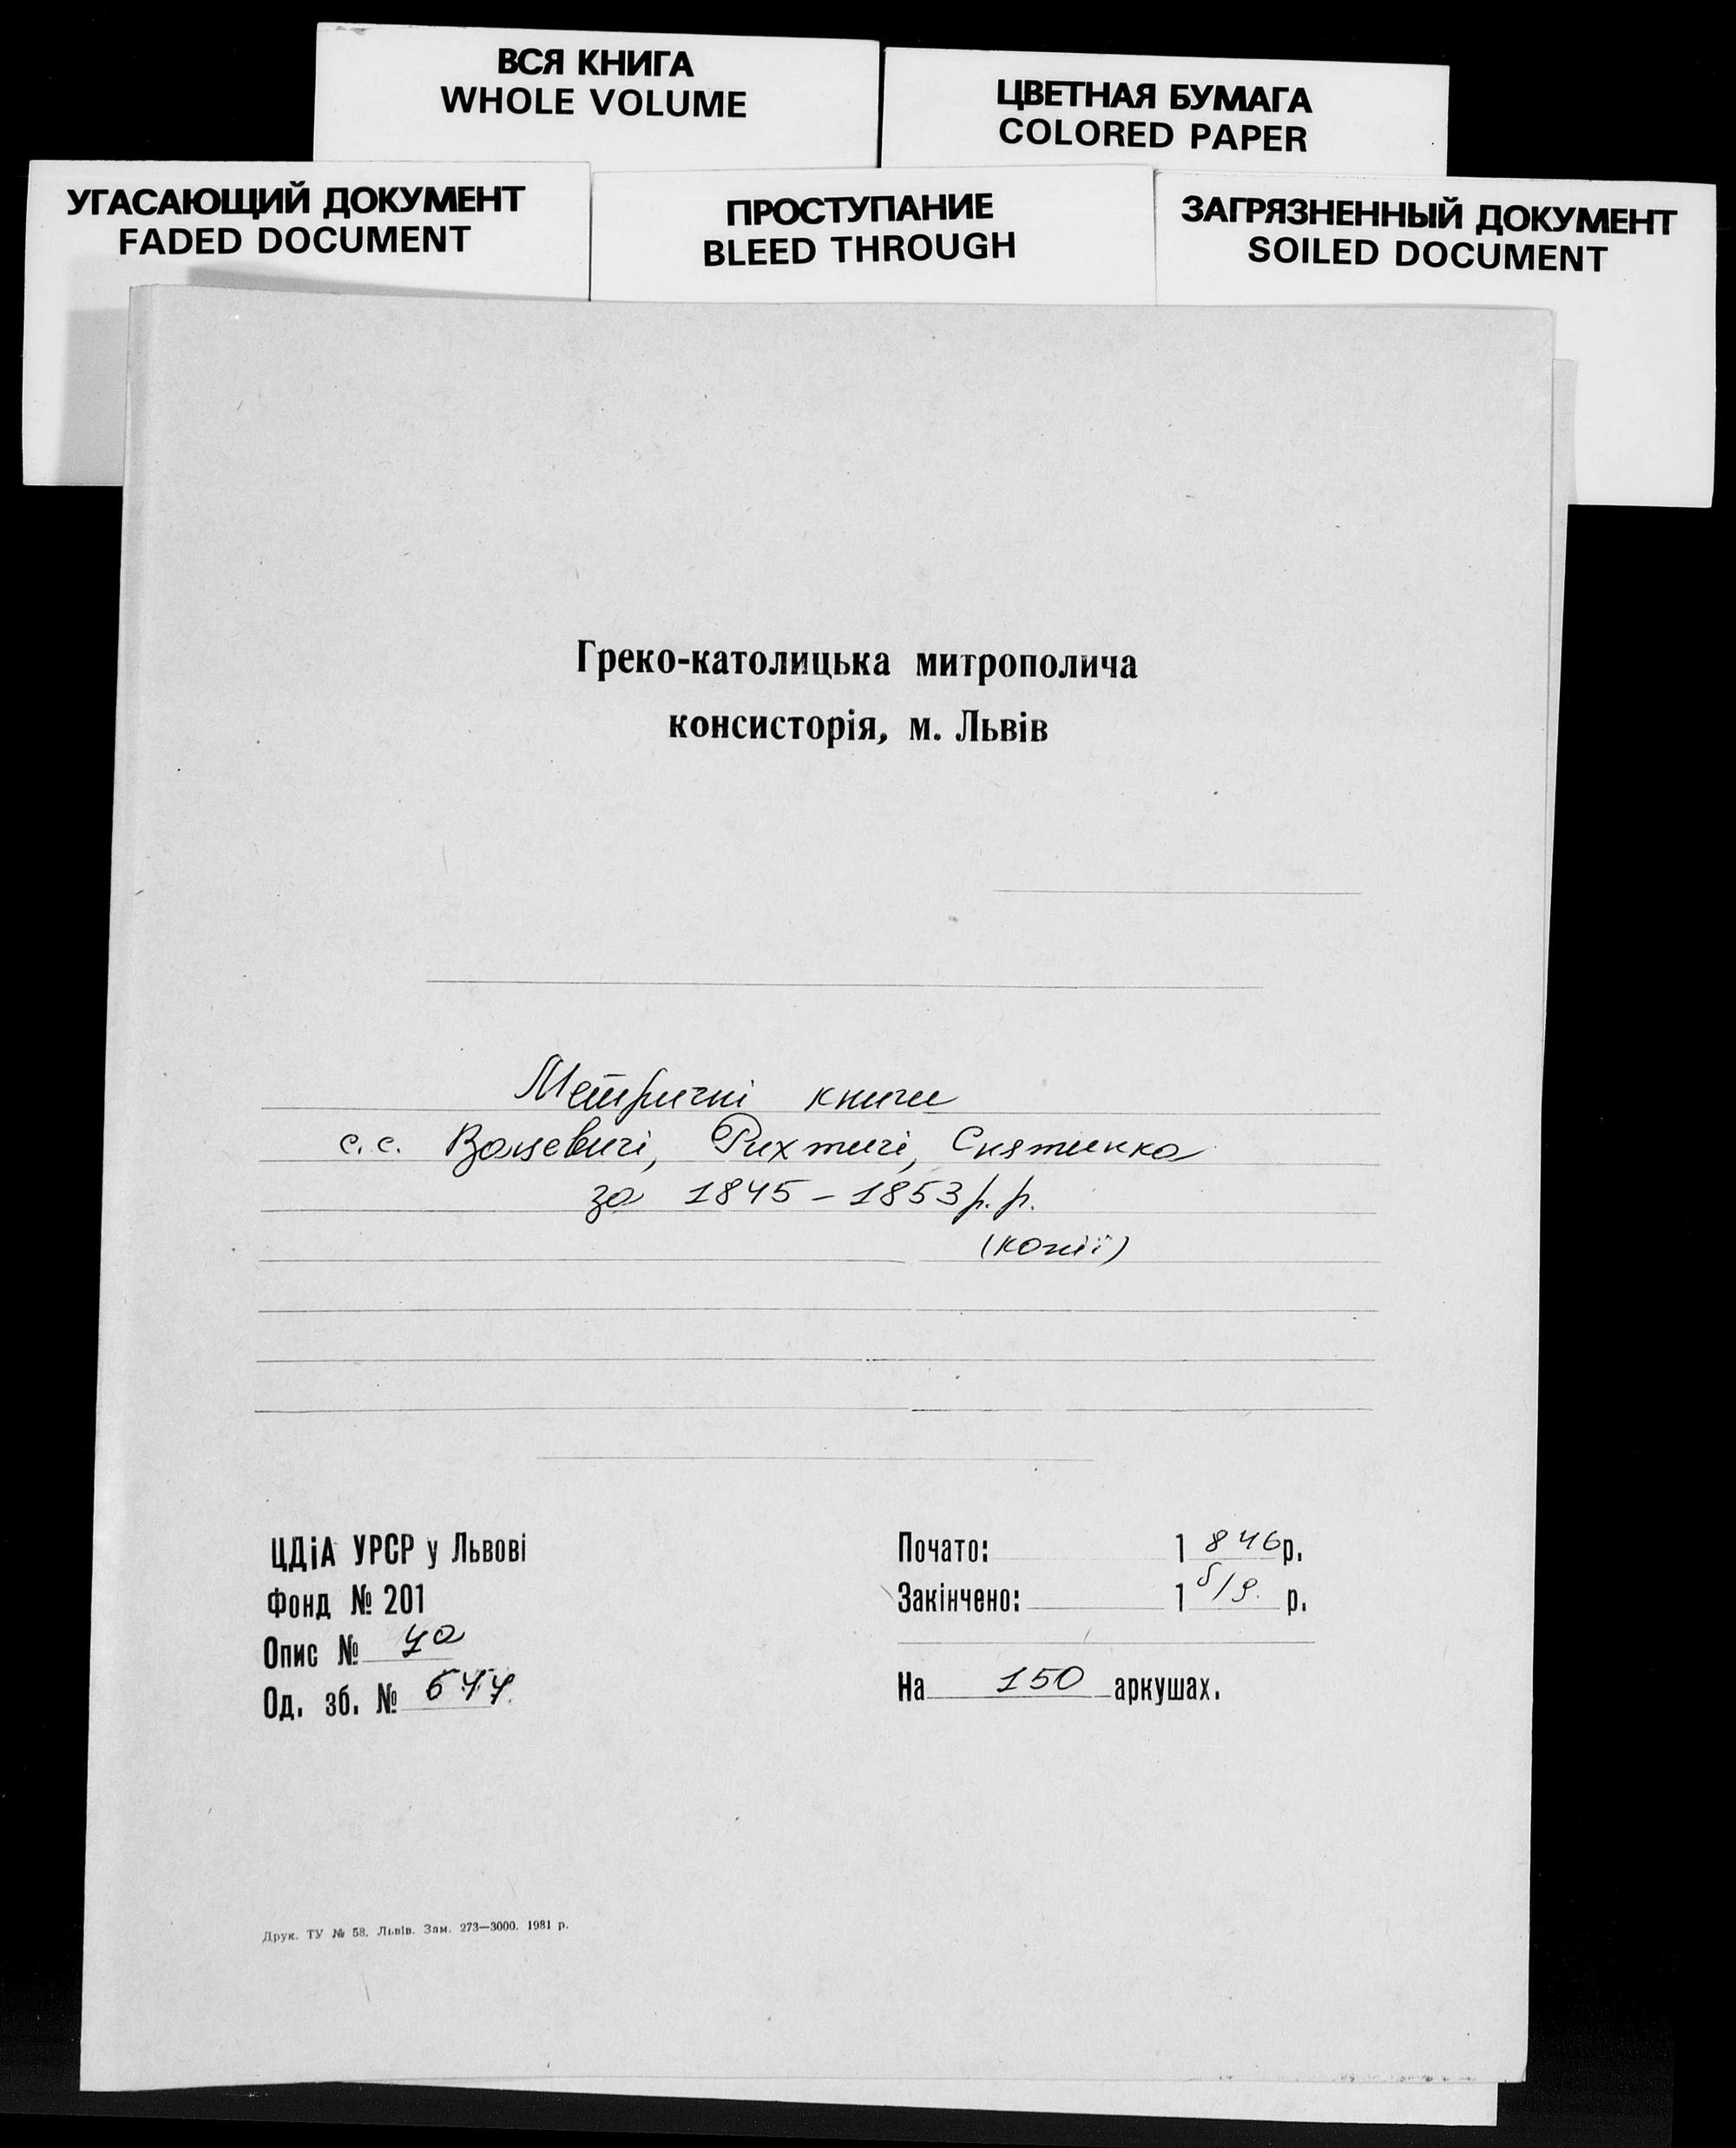 ВСЯ КНИГА
WHOLE VOLUME
ЦВЕТНАЯ БУМАГА
COLORED PAPER
УГАСАЮЩИЙ ДОКУМЕНТ
FADED DOCUMENT
ПРОСТУПАНИЕ
BLEED THROUGH
ЗАГРЯЗНЕННЫЙ ДОКУМЕНТ
SOILED DOCUMENT
Греко-католицька митрополича
консисторія, м. Львів
Метричні книги
с.с. Вацевичі, Рихтичі, Снятинка
за 1845 - 1853 р.р.
(копії)
ЦДіА УРСР у Львові
Фонд № 201
Опис № 4а
Од. зб. №
Почато: 1846р.
Закінчено: 1 б/д. р.
На 150 аркушах.
Друк. ТУ № 58. Львів. Зам. 273—3000. 1981 р.